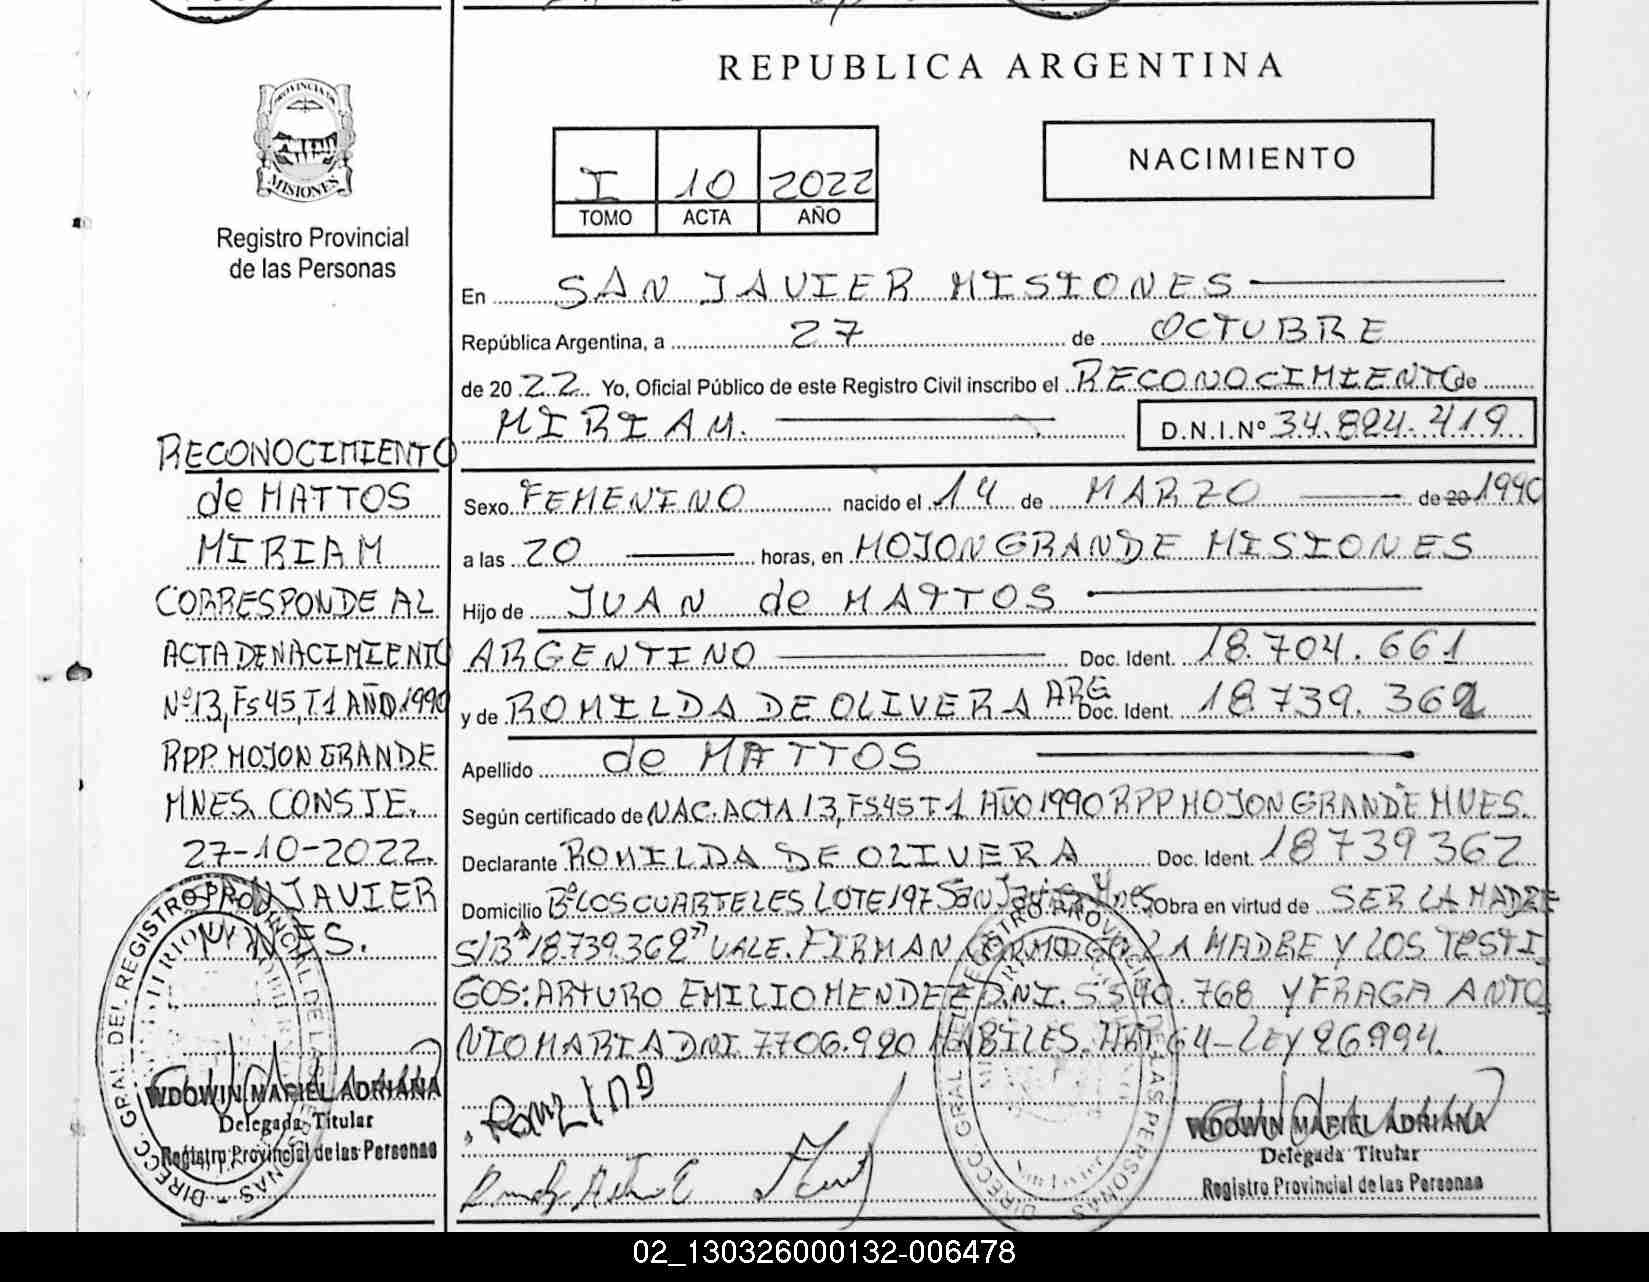 REPUBLICA ARGENTINA
PROVINCIA DE
MISIONES
Registro Provincial
de las Personas
I 10 2022
TOMO ACTA AÑO
NACIMIENTO
En SAN JAVIER MISIONES
República Argentina, a 27 de OCTUBRE
de 2022 Yo, Oficial Público de este Registro Civil inscribo el RECONOCIMIENTO de
MIRIAM. D.N.I.Nº 34.824.419
Sexo FEMENINO nacido el 14 de MARZO de 20 1990
a las 20 horas, en MOJON GRANDE MISIONES
Hijo de JUAN de MATTOS
ARGENTINO Doc. Ident. 18.704.661
y de ROMILDA DE OLIVERA ARG Doc. Ident. 18.739.362
Apellido de MATTOS
Según certificado de NAC. ACTA 13, FS45 T1 AÑO 1990 RPP MOJON GRANDE MNES.
Declarante ROMILDA DE OLIVERA Doc. Ident. 18739362
Domicilio Bº LOS CUARTELES LOTE 197 San Javier Mnes Obra en virtud de SER LA MADRE
S/B "18.739.362" VALE. FIRMAN LA MADRE Y LOS TESTI
GOS: ARTURO EMILIO MENDEZ D.N.I. 5.540.768 Y FRAGA ANTO
NIO MARIA DNI 7706.920 HABILES. ART 64-LEY 26994.
RECONOCIMIENTO
de MATTOS
MIRIAM
CORRESPONDE AL
ACTA DE NACIMIENTO
Nº 13, Fs 45, T1 AÑO 1990
RPP. MOJON GRANDE
MNES. CONSTE.
27-10-2022.
JAVIER
DIRECC. GRAL. DEL REGISTRO PROVINCIAL DE LAS PERSONAS
WDOWIN MARIEL ADRIANA
Delegada Titular
Registro Provincial de las Personas
DIRECC. GRAL DEL REGISTRO PROVINCIAL DE LAS PERSONAS
San Javier
WDOWIN MARIEL ADRIANA
Delegada Titular
Registro Provincial de las Personas
02_130326000132-006478